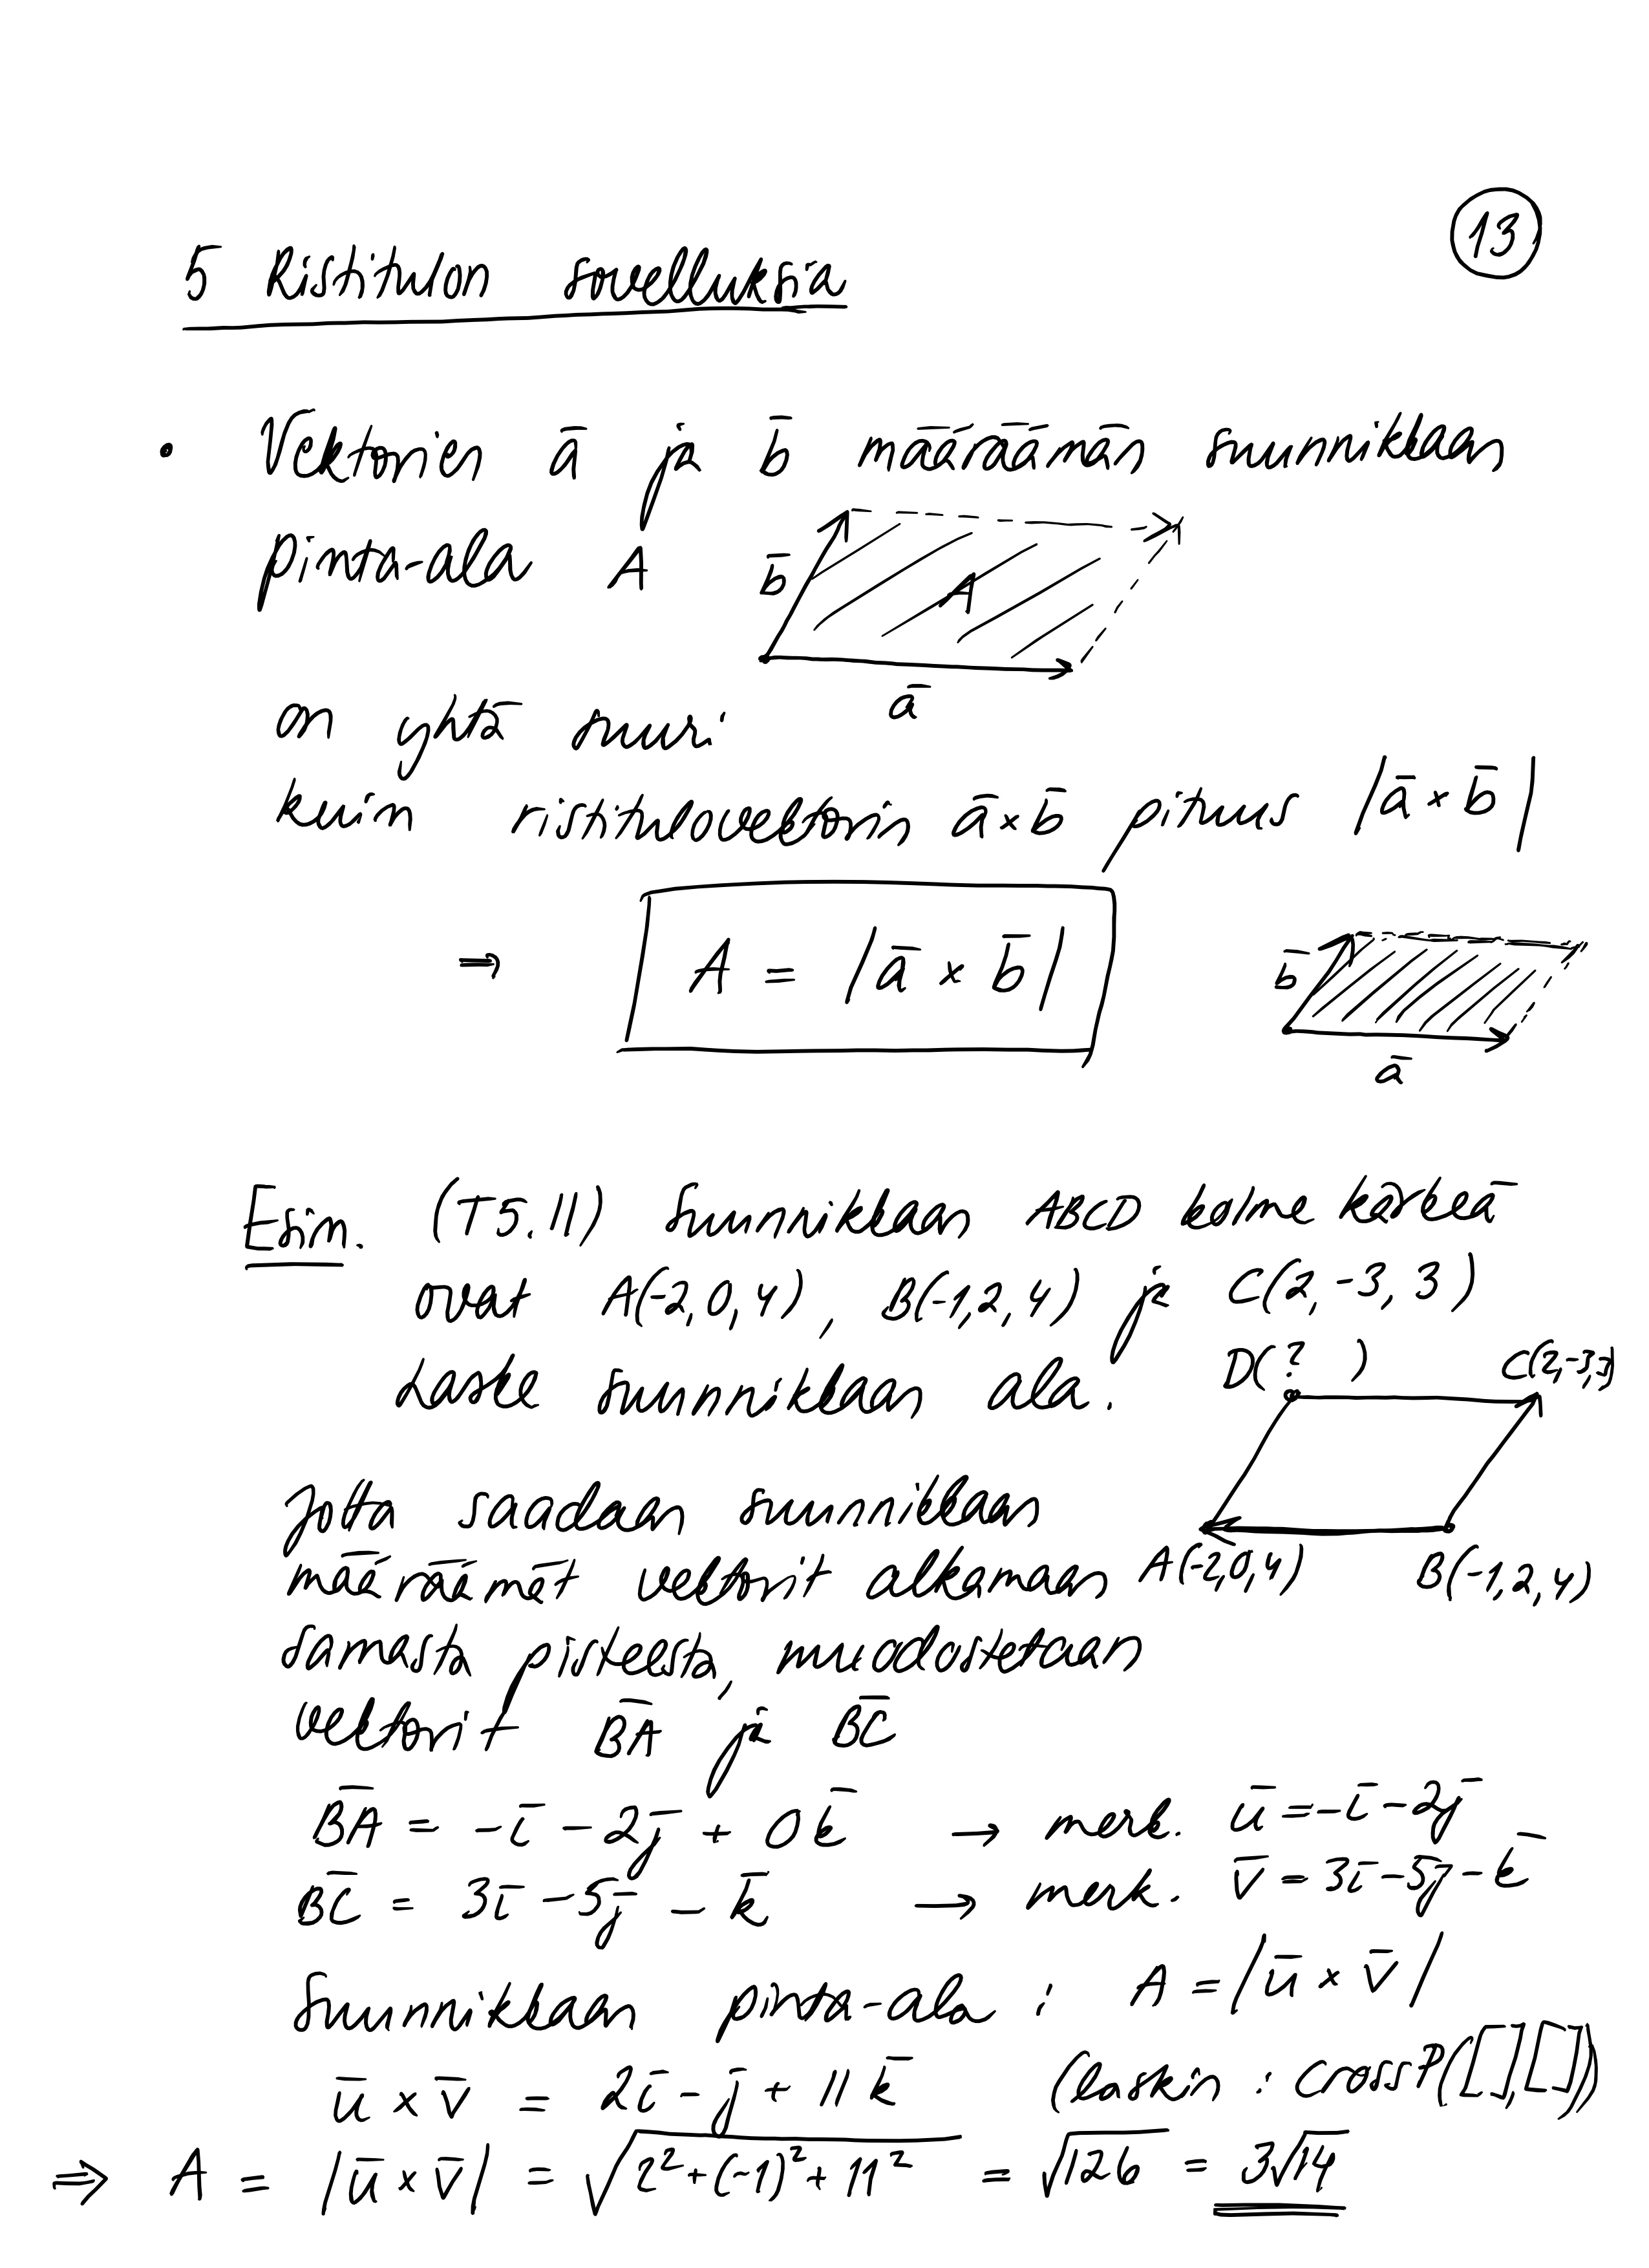 13
5 Ristitulon sovelluksia
• Vektorien ā ja b̄ määräämän suunnikkaan
pinta-ala A
b̄
A
ā
on yhtä suuri
kuin ristitulovektorin ā×b̄ pituus |ā×b̄|
⇒ A = |ā × b̄|
b̄
ā
Esim. (T5.11) Suunnikkaan ABCD kolme kärkeä
ovat A(-2,0,4), B(-1,2,4) ja C(2,-3,3)
Laske suunnikkaan ala.
D( ? ) C(2,-3,3)
Jotta saadaan suunnikkaan
määräämät vektorit alkamaan
A(-2,0,4) B(-1,2,4)
samasta pisteestä, muodostetaan
vektorit B̅A̅ ja B̅C̅
B̅A̅ = -ī - 2j̄ + 0k̄ → merk. ū = -ī - 2j̄
B̅C̅ = 3ī - 5j̄ - k̄ → merk. v̄ = 3ī - 5j̄ - k̄
Suunnikkaan pinta-ala : A = |ū × v̄|
ū × v̄ = 2ī - j̄ + 11k̄ (laskin : crossP([],[]))
⇒ A = |ū × v̄| = √(2²+(-1)²+11²) = √126 = 3√14